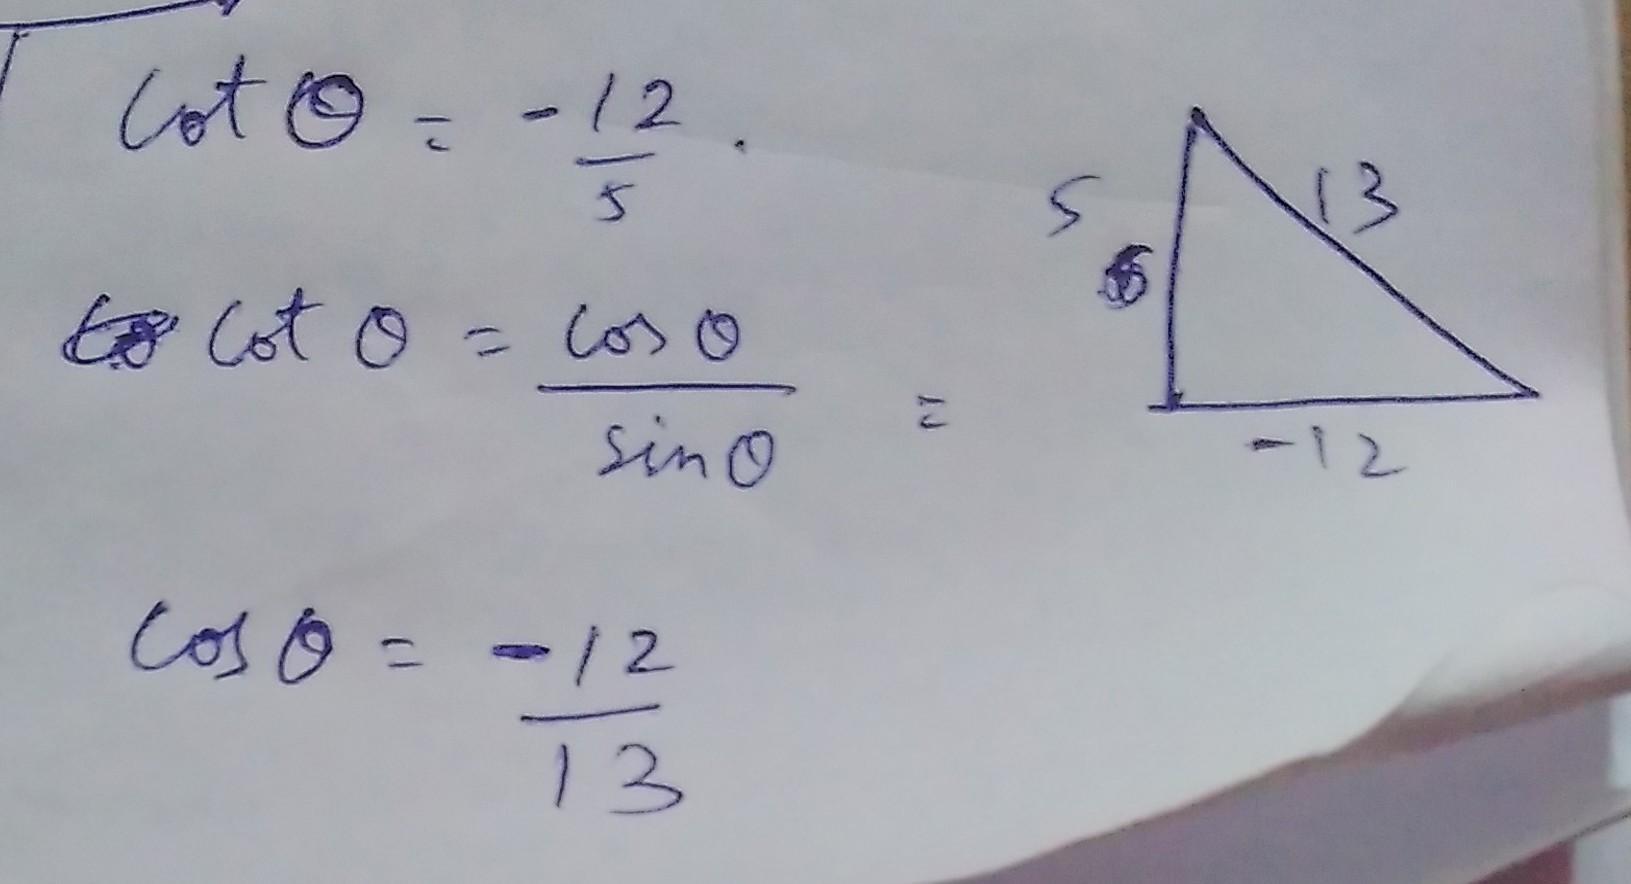 cot θ = -12/5.
cot θ = cos θ/sin θ =
5
13
-12
cos θ = -12/13